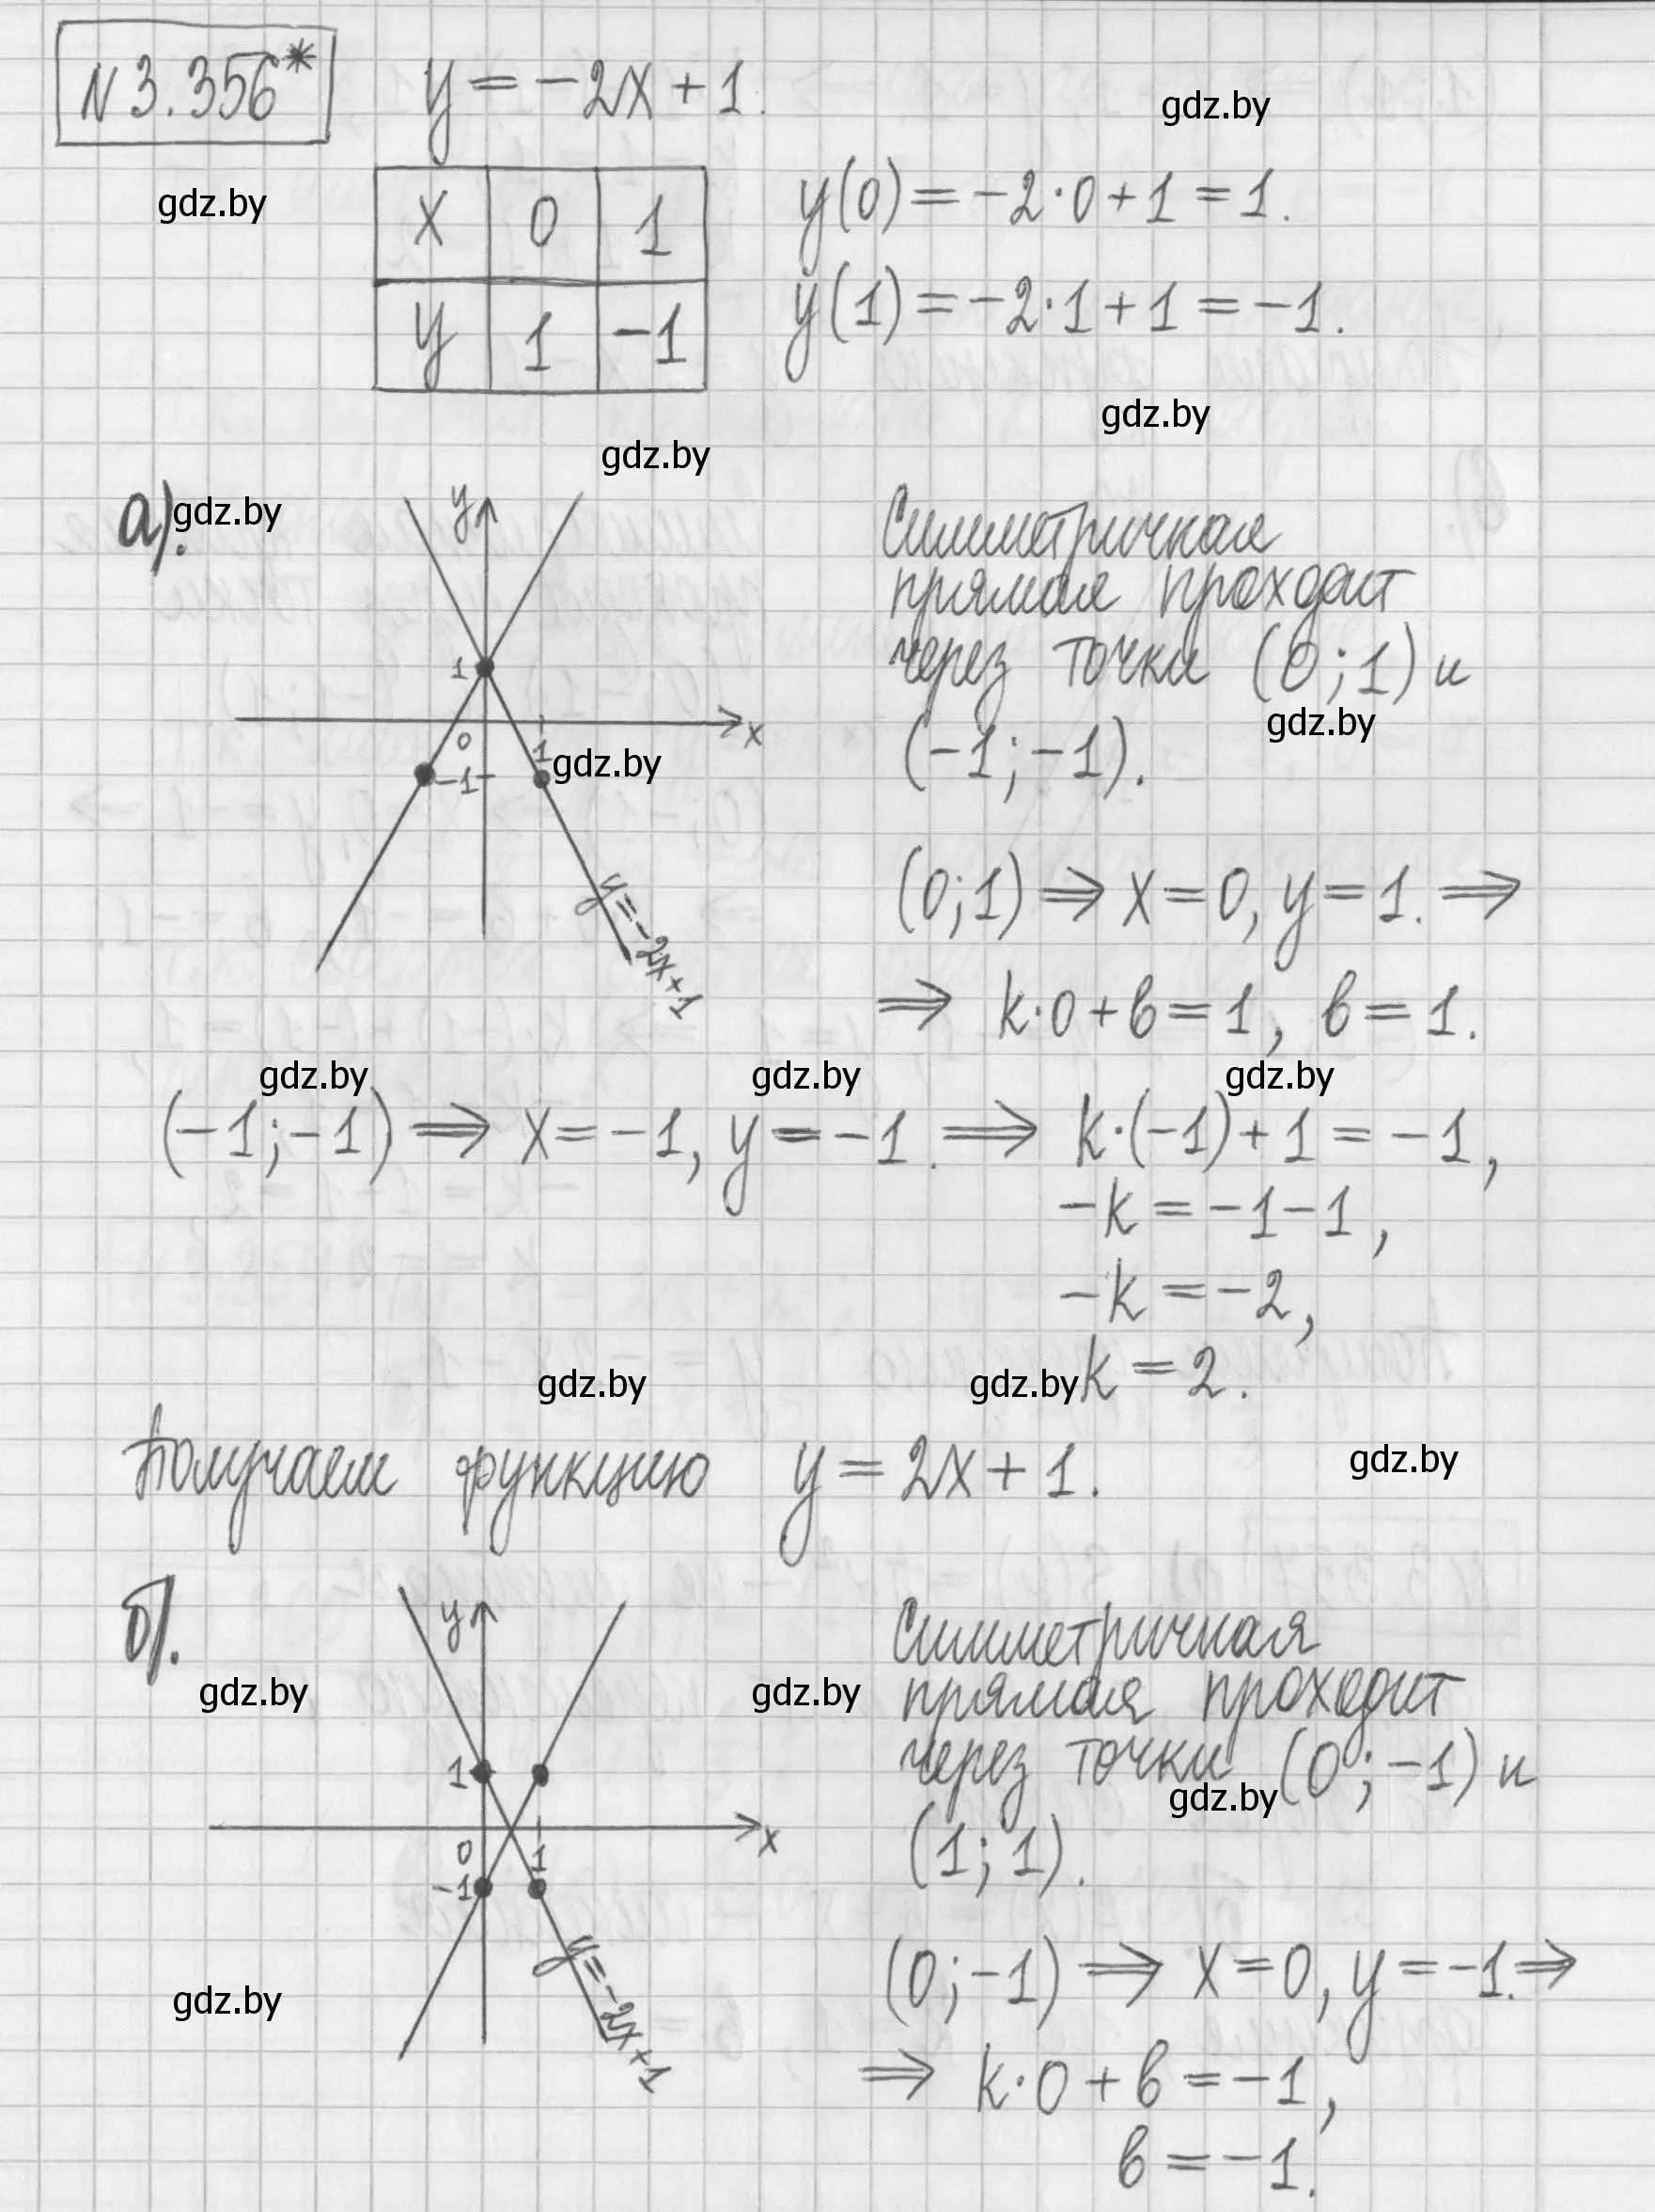 N 3.356* y = -2x + 1. gdz.by
gdz.by
x 0 1
y 1 -1
y(0) = -2·0 + 1 = 1.
y(1) = -2·1 + 1 = -1.
gdz.by
gdz.by
а). gdz.by
y
1
0
1
-1
x
gdz.by
y = -2x + 1
Симметричная
прямая проходит
через точки (0; 1) и
gdz.by
(-1; -1).
(0; 1) ⇒ x = 0, y = 1. ⇒
⇒ k·0 + b = 1, b = 1.
gdz.by gdz.by gdz.by
(-1; -1) ⇒ x = -1, y = -1. ⇒ k·(-1) + 1 = -1,
-k = -1 - 1,
-k = -2,
gdz.by gdz.by k = 2.
Получаем функцию y = 2x + 1. gdz.by
б).
gdz.by
y
1
0
1
-1
x
y = -2x + 1
gdz.by
Симметричная
gdz.by прямая проходит
через точки (0; -1) и
gdz.by
(1; 1).
(0; -1) ⇒ x = 0, y = -1. ⇒
⇒ k·0 + b = -1,
b = -1.